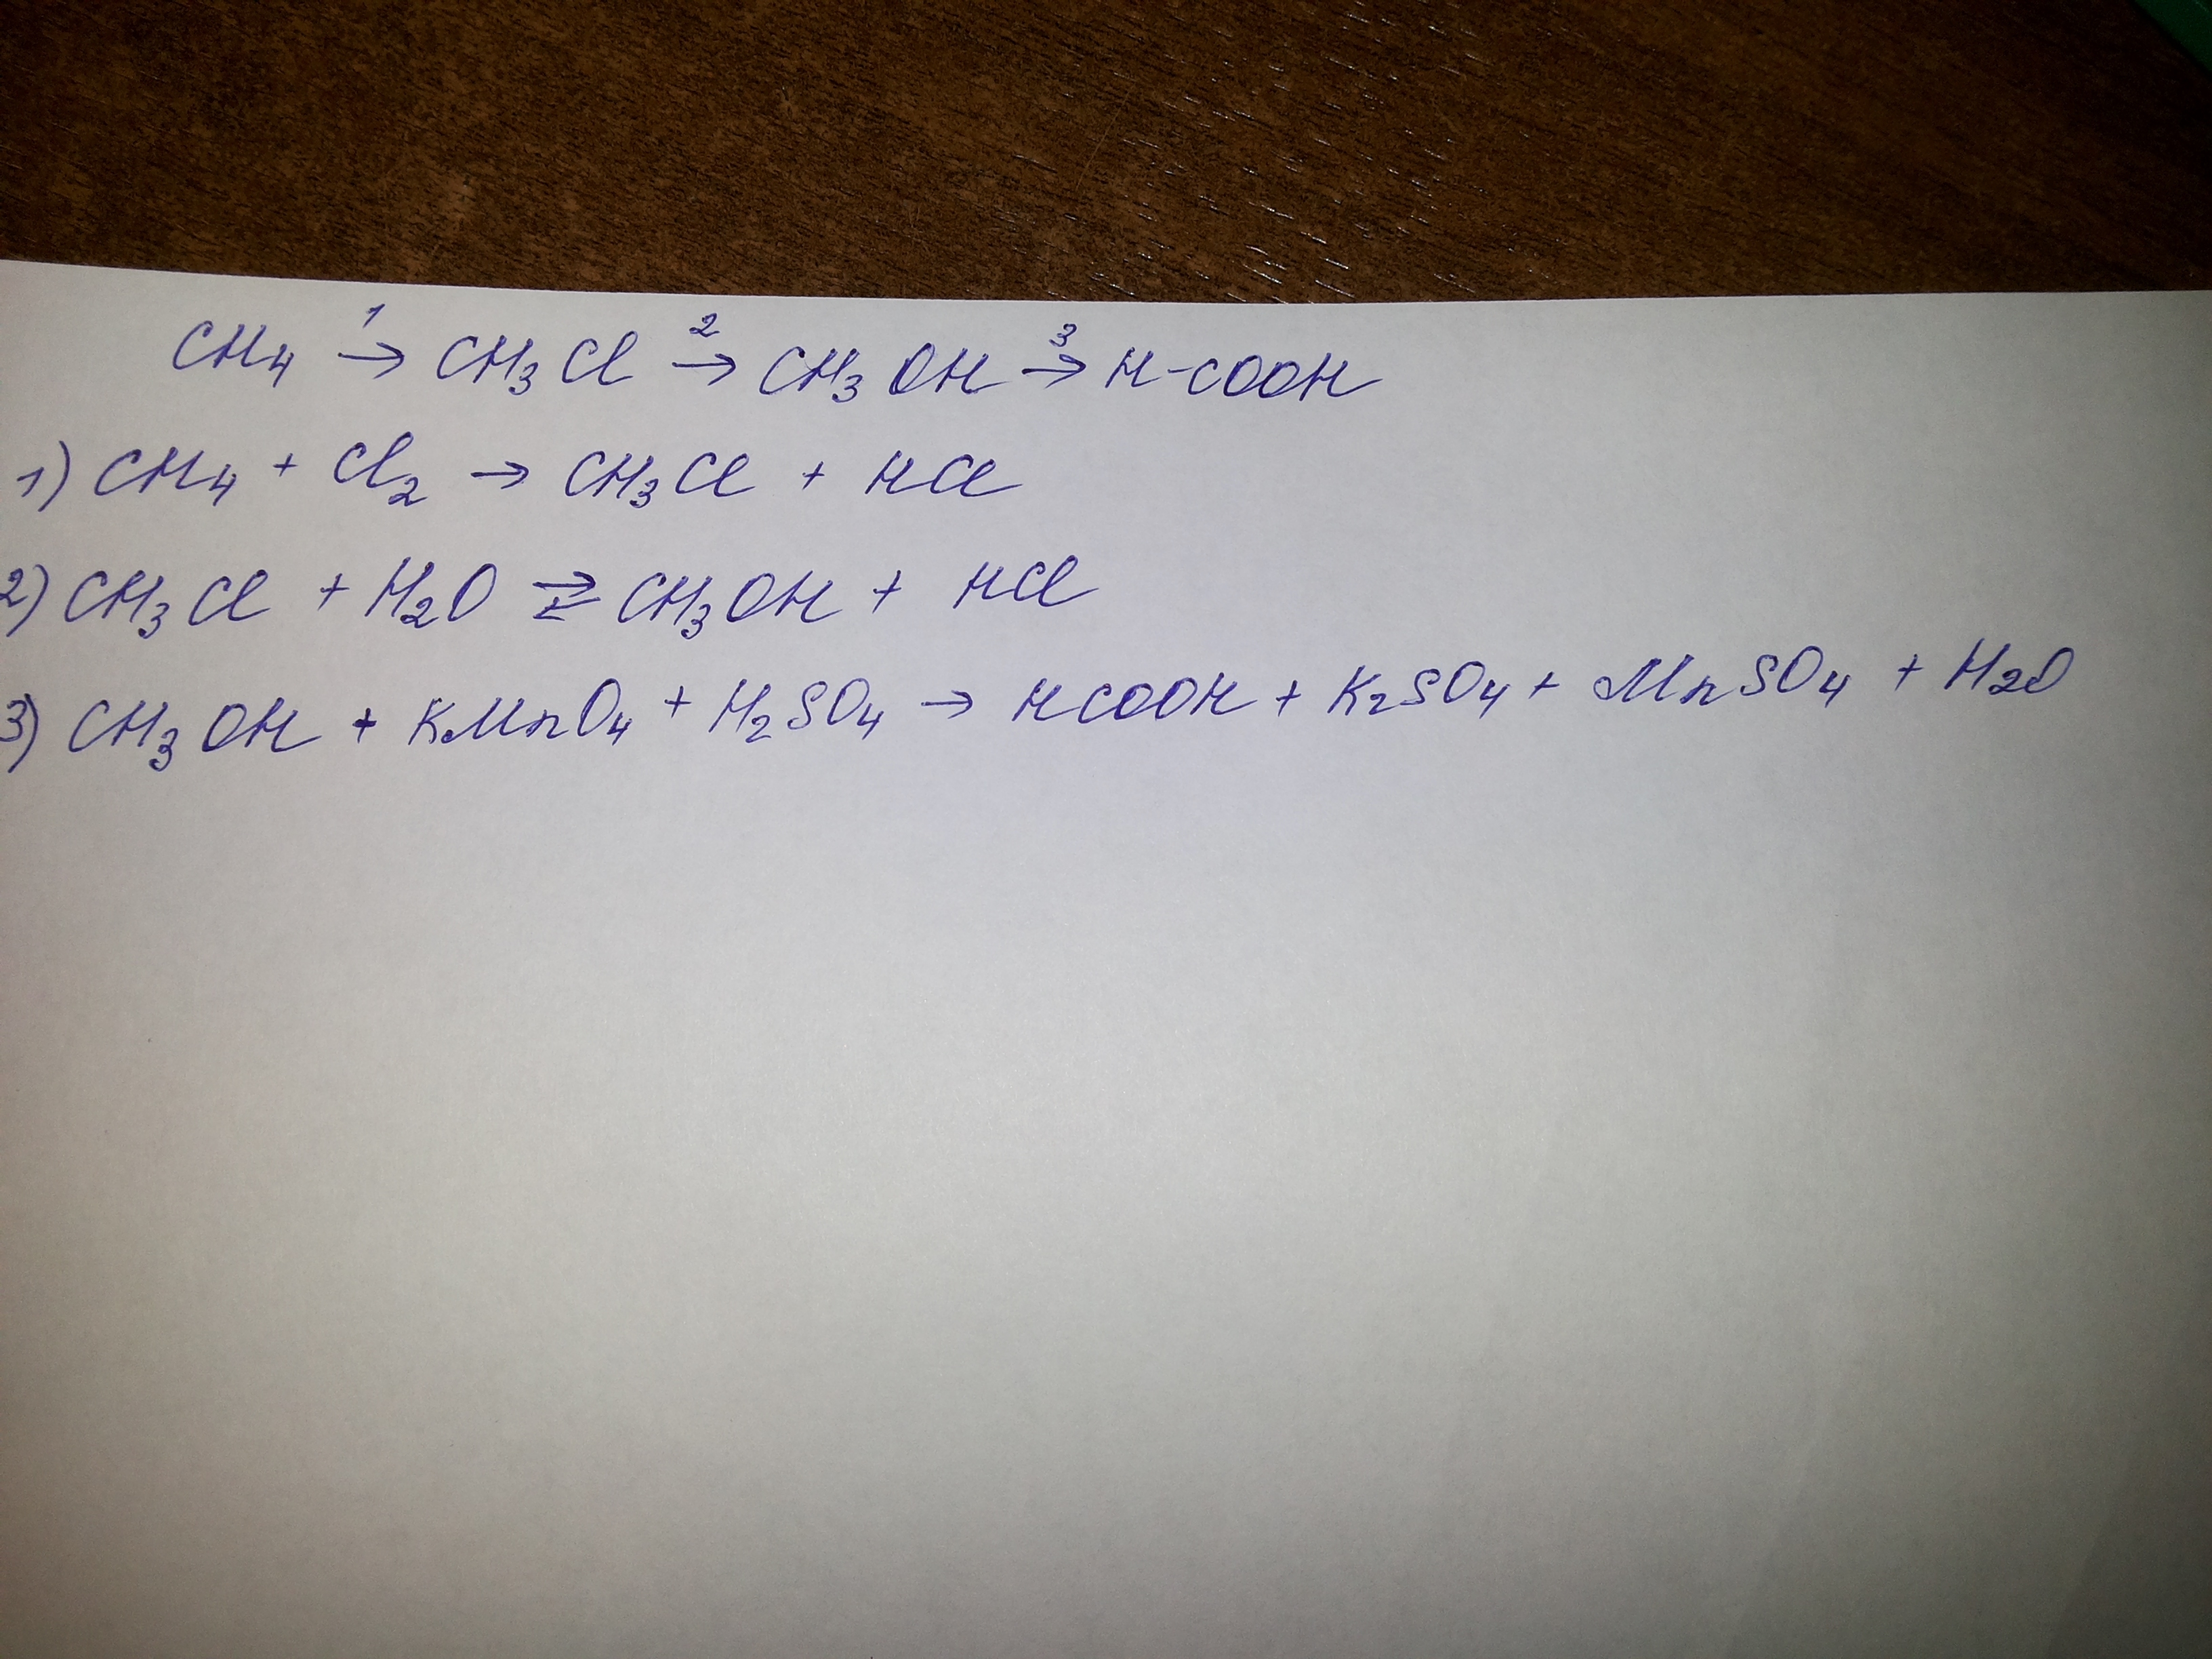 CH₄ →¹ CH₃Cl →² CH₃OH →³ H-COOH
1) CH₄ + Cl₂ → CH₃Cl + HCl
2) CH₃Cl + H₂O ⇄ CH₃OH + HCl
3) CH₃OH + KMnO₄ + H₂SO₄ → HCOOH + K₂SO₄ + MnSO₄ + H₂O